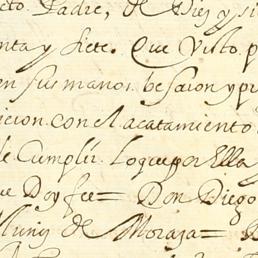 cto. Padre, de Diez y si
enta y siete. Que Visto p
en sus manos, besaron y pu
icion con el acatamiento
de Cumplir. Lo que por Ella
ue Doy fee = Don Diego
Muniz de Moraga =